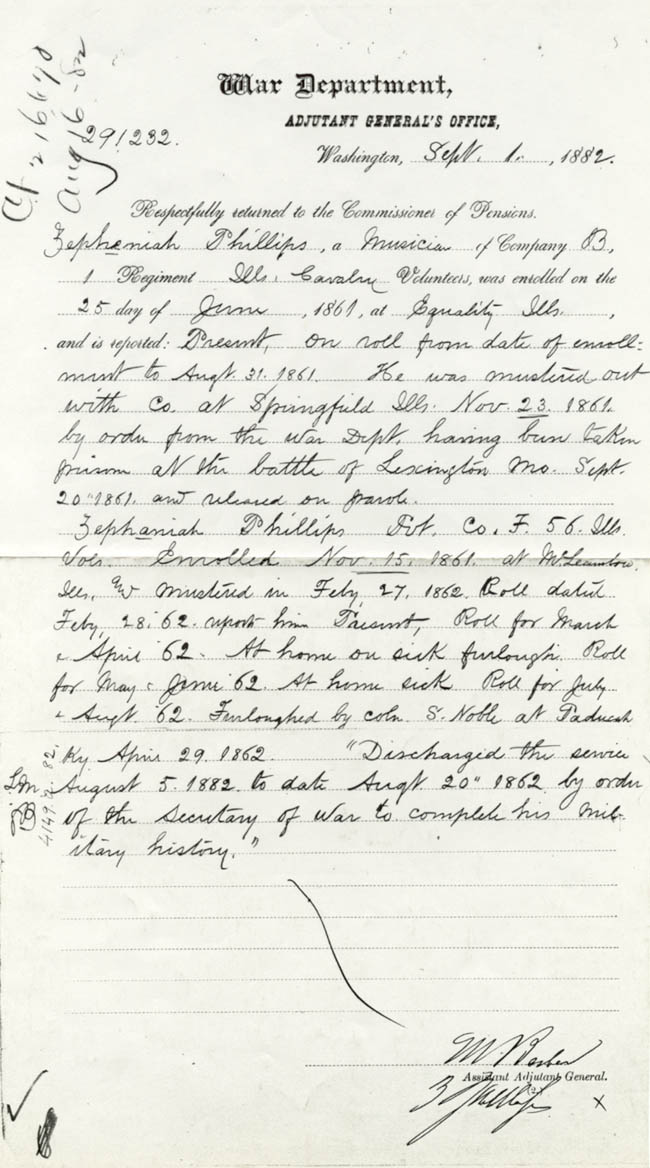 War Department,
ADJUTANT GENERAL'S OFFICE,
291232.
Aug 16-82
Washington, Sept. 1., 1882.
Respectfully returned to the Commissioner of Pensions.
Zephaniah Phillips, a Musician of Company B,
1 Regiment Ills. Cavalry Volunteers, was enrolled on the
25 day of June, 1861, at Equality Ills.,
and is reported: Present, on roll from date of enroll-
ment to Augt. 31. 1861. He was mustered out
with Co. at Springfield Ills. Nov. 23. 1861.
by order from the War Dept. having been taken
prison at the battle of Lexington Mo. Sept.
20" 1861. and released on parole.
Zephaniah Phillips Pvt. Co. F. 56. Ills.
Vols. Enrolled Nov. 15. 1861. at
Ills. and mustered in Feby. 27. 1862. Roll dated
Feby. 28. 62. report him Present, Roll for March
& April 62. At home on sick furlough. Roll
for May & June 62. At home sick Roll for July
& Augt. 62. Furloughed by coln. S. Noble at Paducah
Ky April 29. 1862. "Discharged the service
August 5. 1882. to date Augt. 20" 1862 by order
of the Secretary of War to complete his mil-
itary history."
Assistant Adjutant General.
(2.)
x